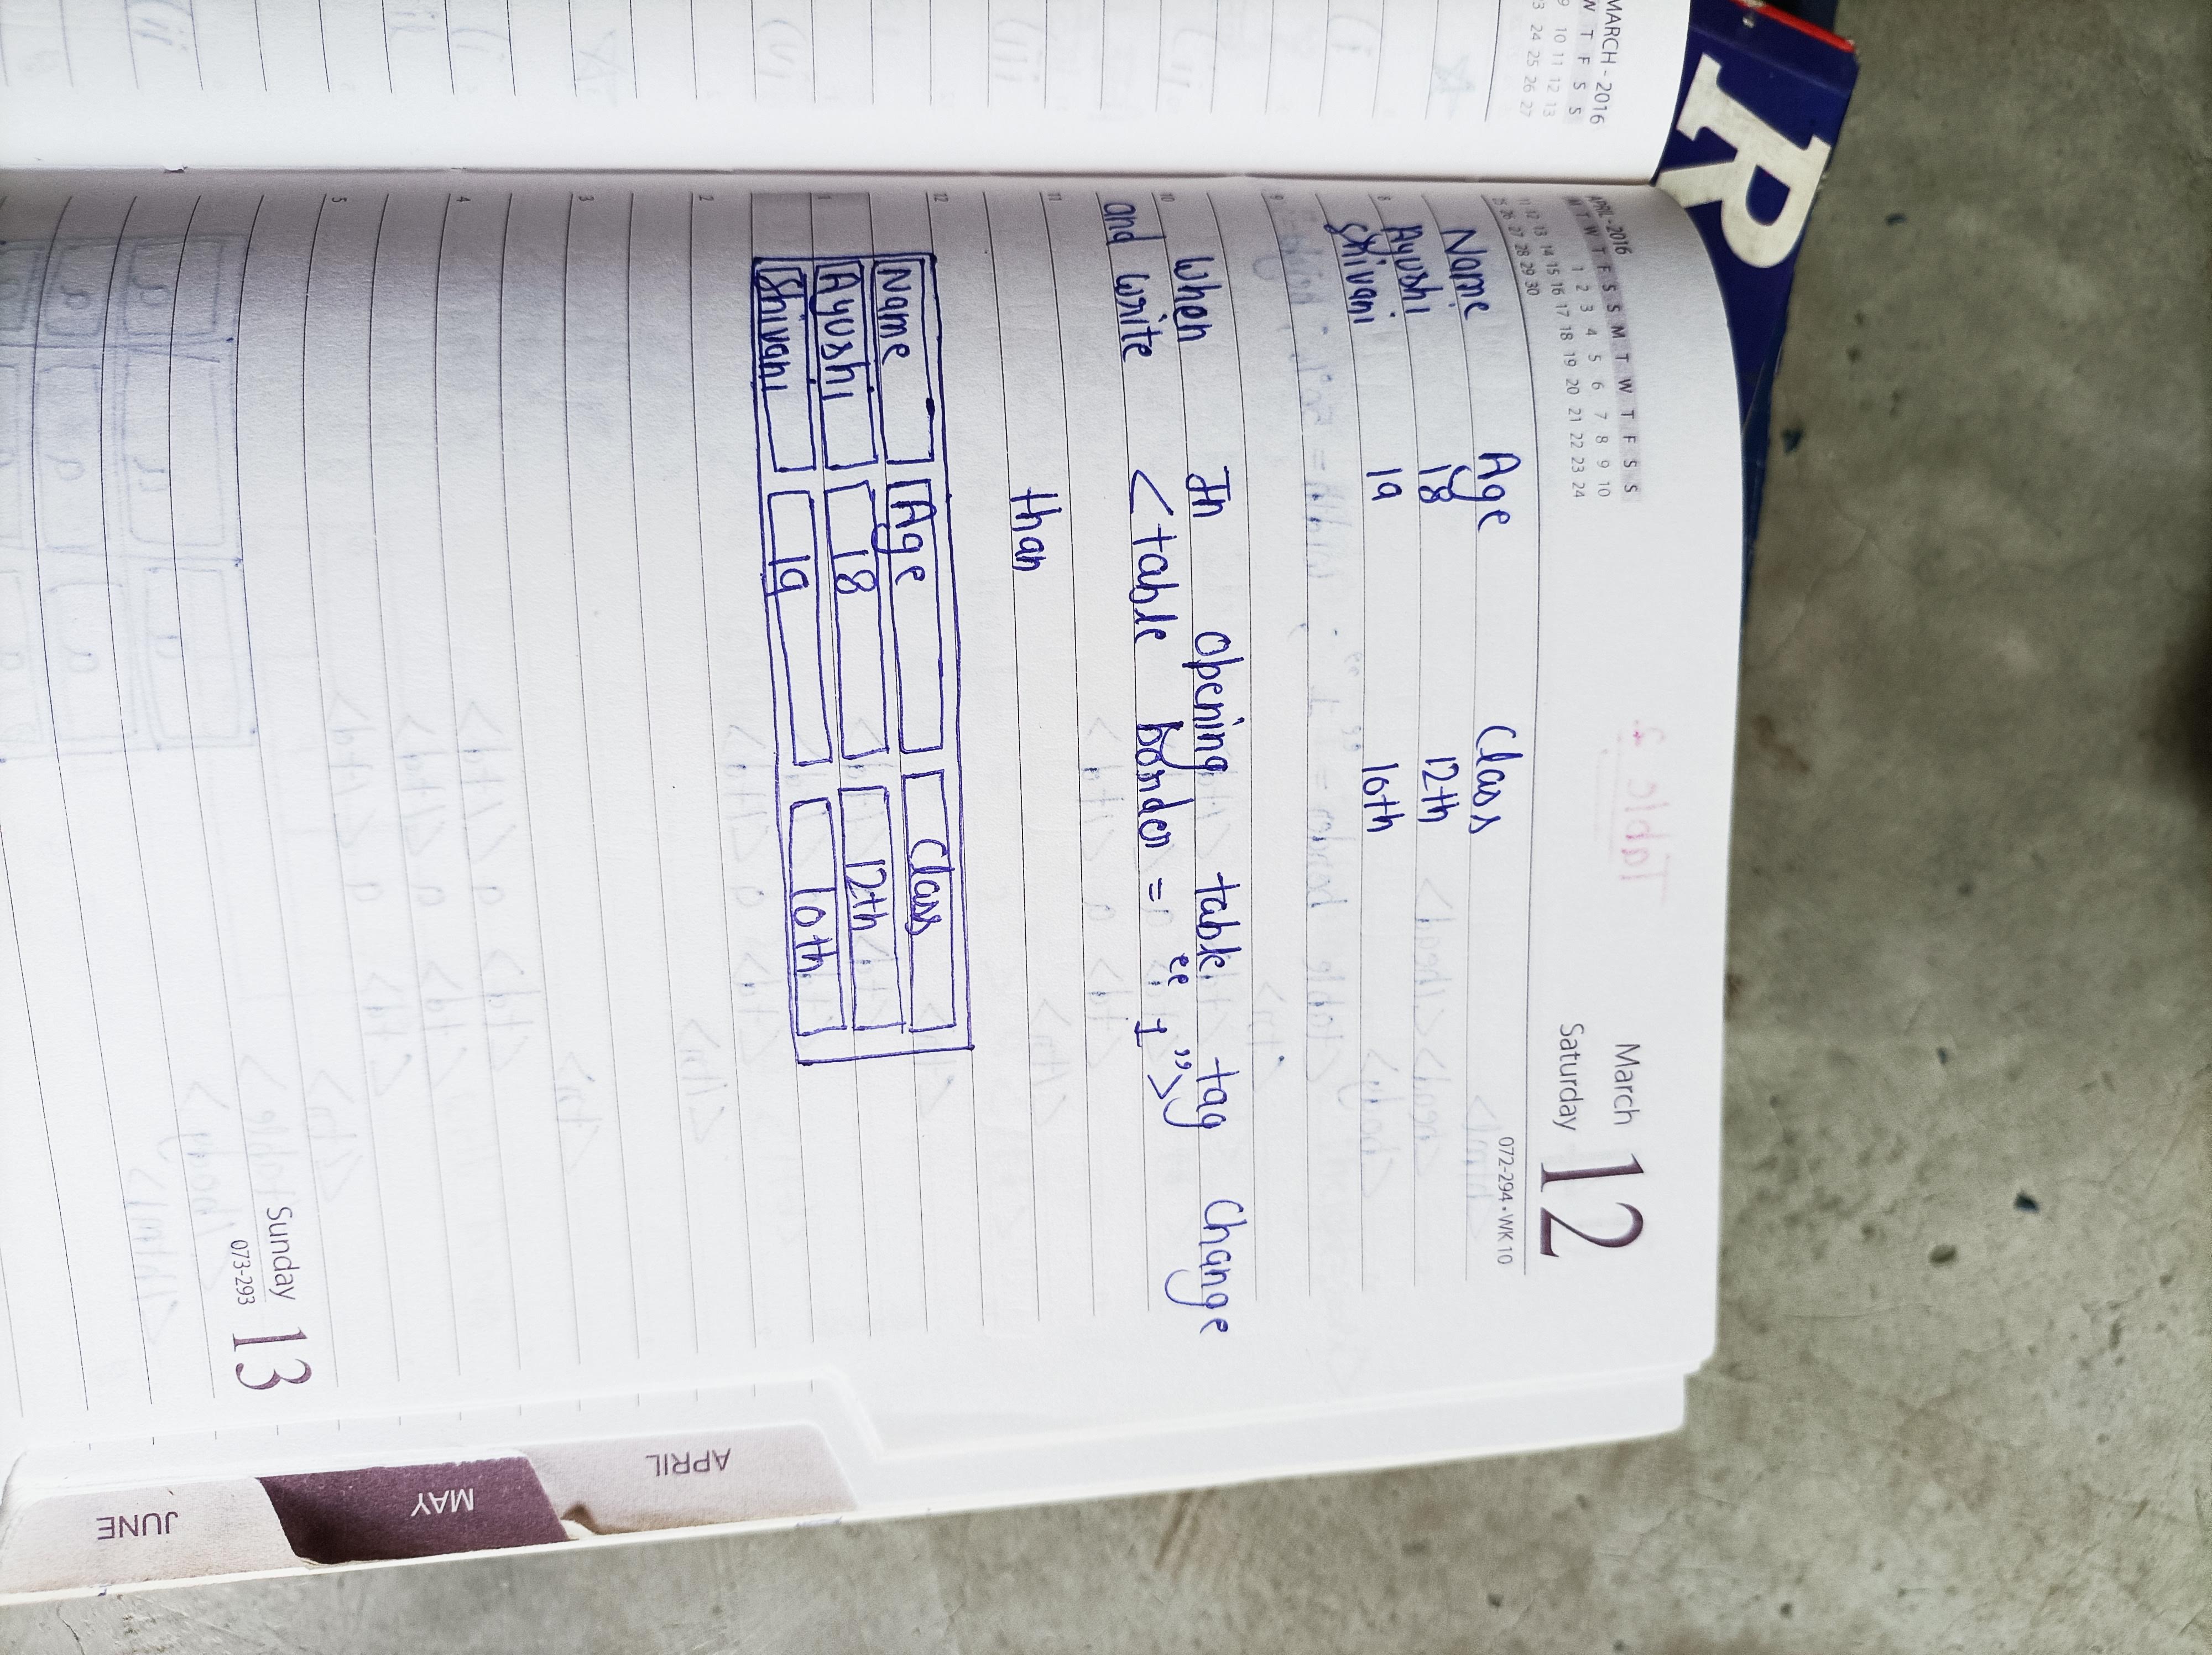 MARCH - 2016
W T F S S
9 10 11 12 13
23 24 25 26 27
R
APRIL - 2016
M T W T F S S M T W T F S S
1 2 3 4 5 6 7 8 9 10
11 12 13 14 15 16 17 18 19 20 21 22 23 24
25 26 27 28 29 30
March 12
Saturday
072-294 • WK 10
Name Age Class
Ayushi 18 12th
Shivani 19 10th
When In opening table tag change
and write <table border = "1">
than
Name Age Class
Ayushi 18 12th
Shivani 19 10th
8
9
10
11
12
1
2
3
4
5
Sunday 13
073-293
APRIL
MAY
JUNE